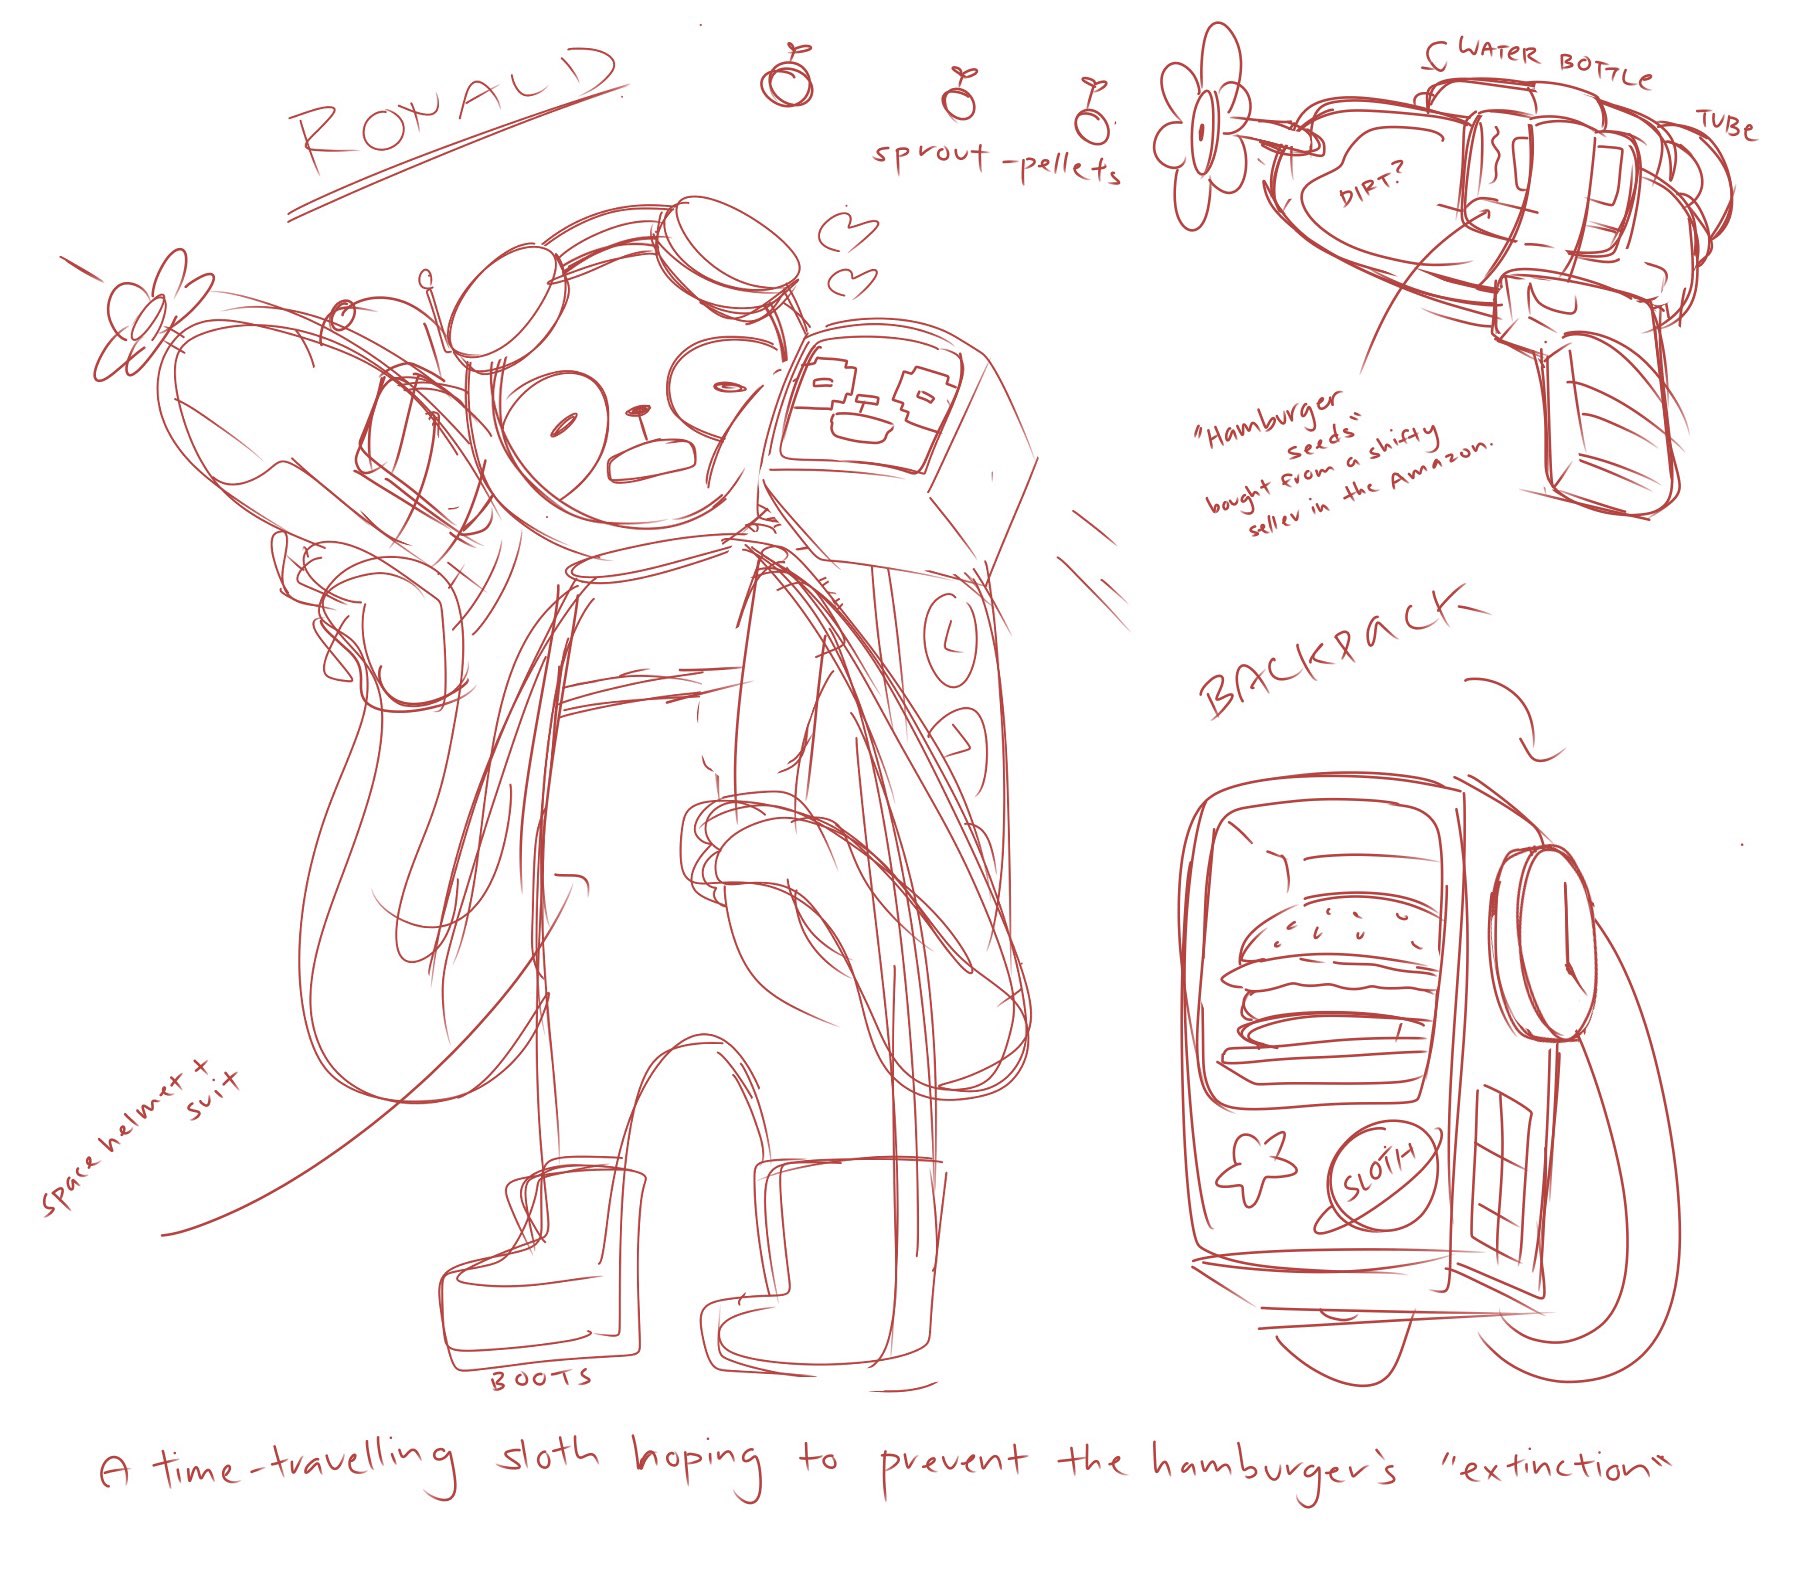 RONALD
sprout-pellets
WATER BOTTLE
TUBE
DIRT?
"Hamburger
seeds"
bought from a shifty
seller in the Amazon.
BACKPACK
SLOTH
space helmet +
suit
BOOTS
A time-travelling sloth hoping to prevent the hamburger's "extinction"